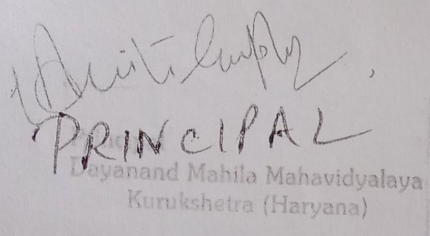 PRINCIPAL
Dayanand Mahila Mahavidyalaya
Kurukshetra (Haryana)